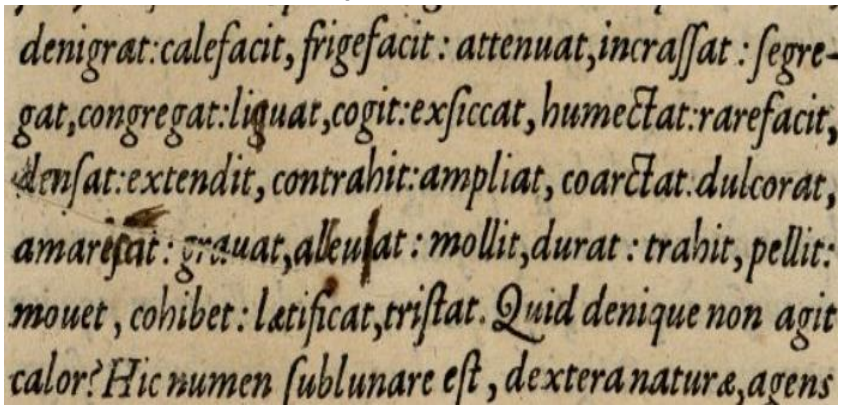 denigrat:calefacit, frigefacit: attenuat,incraſſat: ſegre-
gat,congregat:liquat,cogit:exſiccat, humectat:rarefacit,
denſat:extendit, contrahit:ampliat, coarctat:dulcorat,
grauat, mollit,durat: trahit, pellit:
mouet, cohibet: lætificat,triſtat. Quid denique non agit
calor? Hic numen ſublunare eſt, dextera naturæ,agens